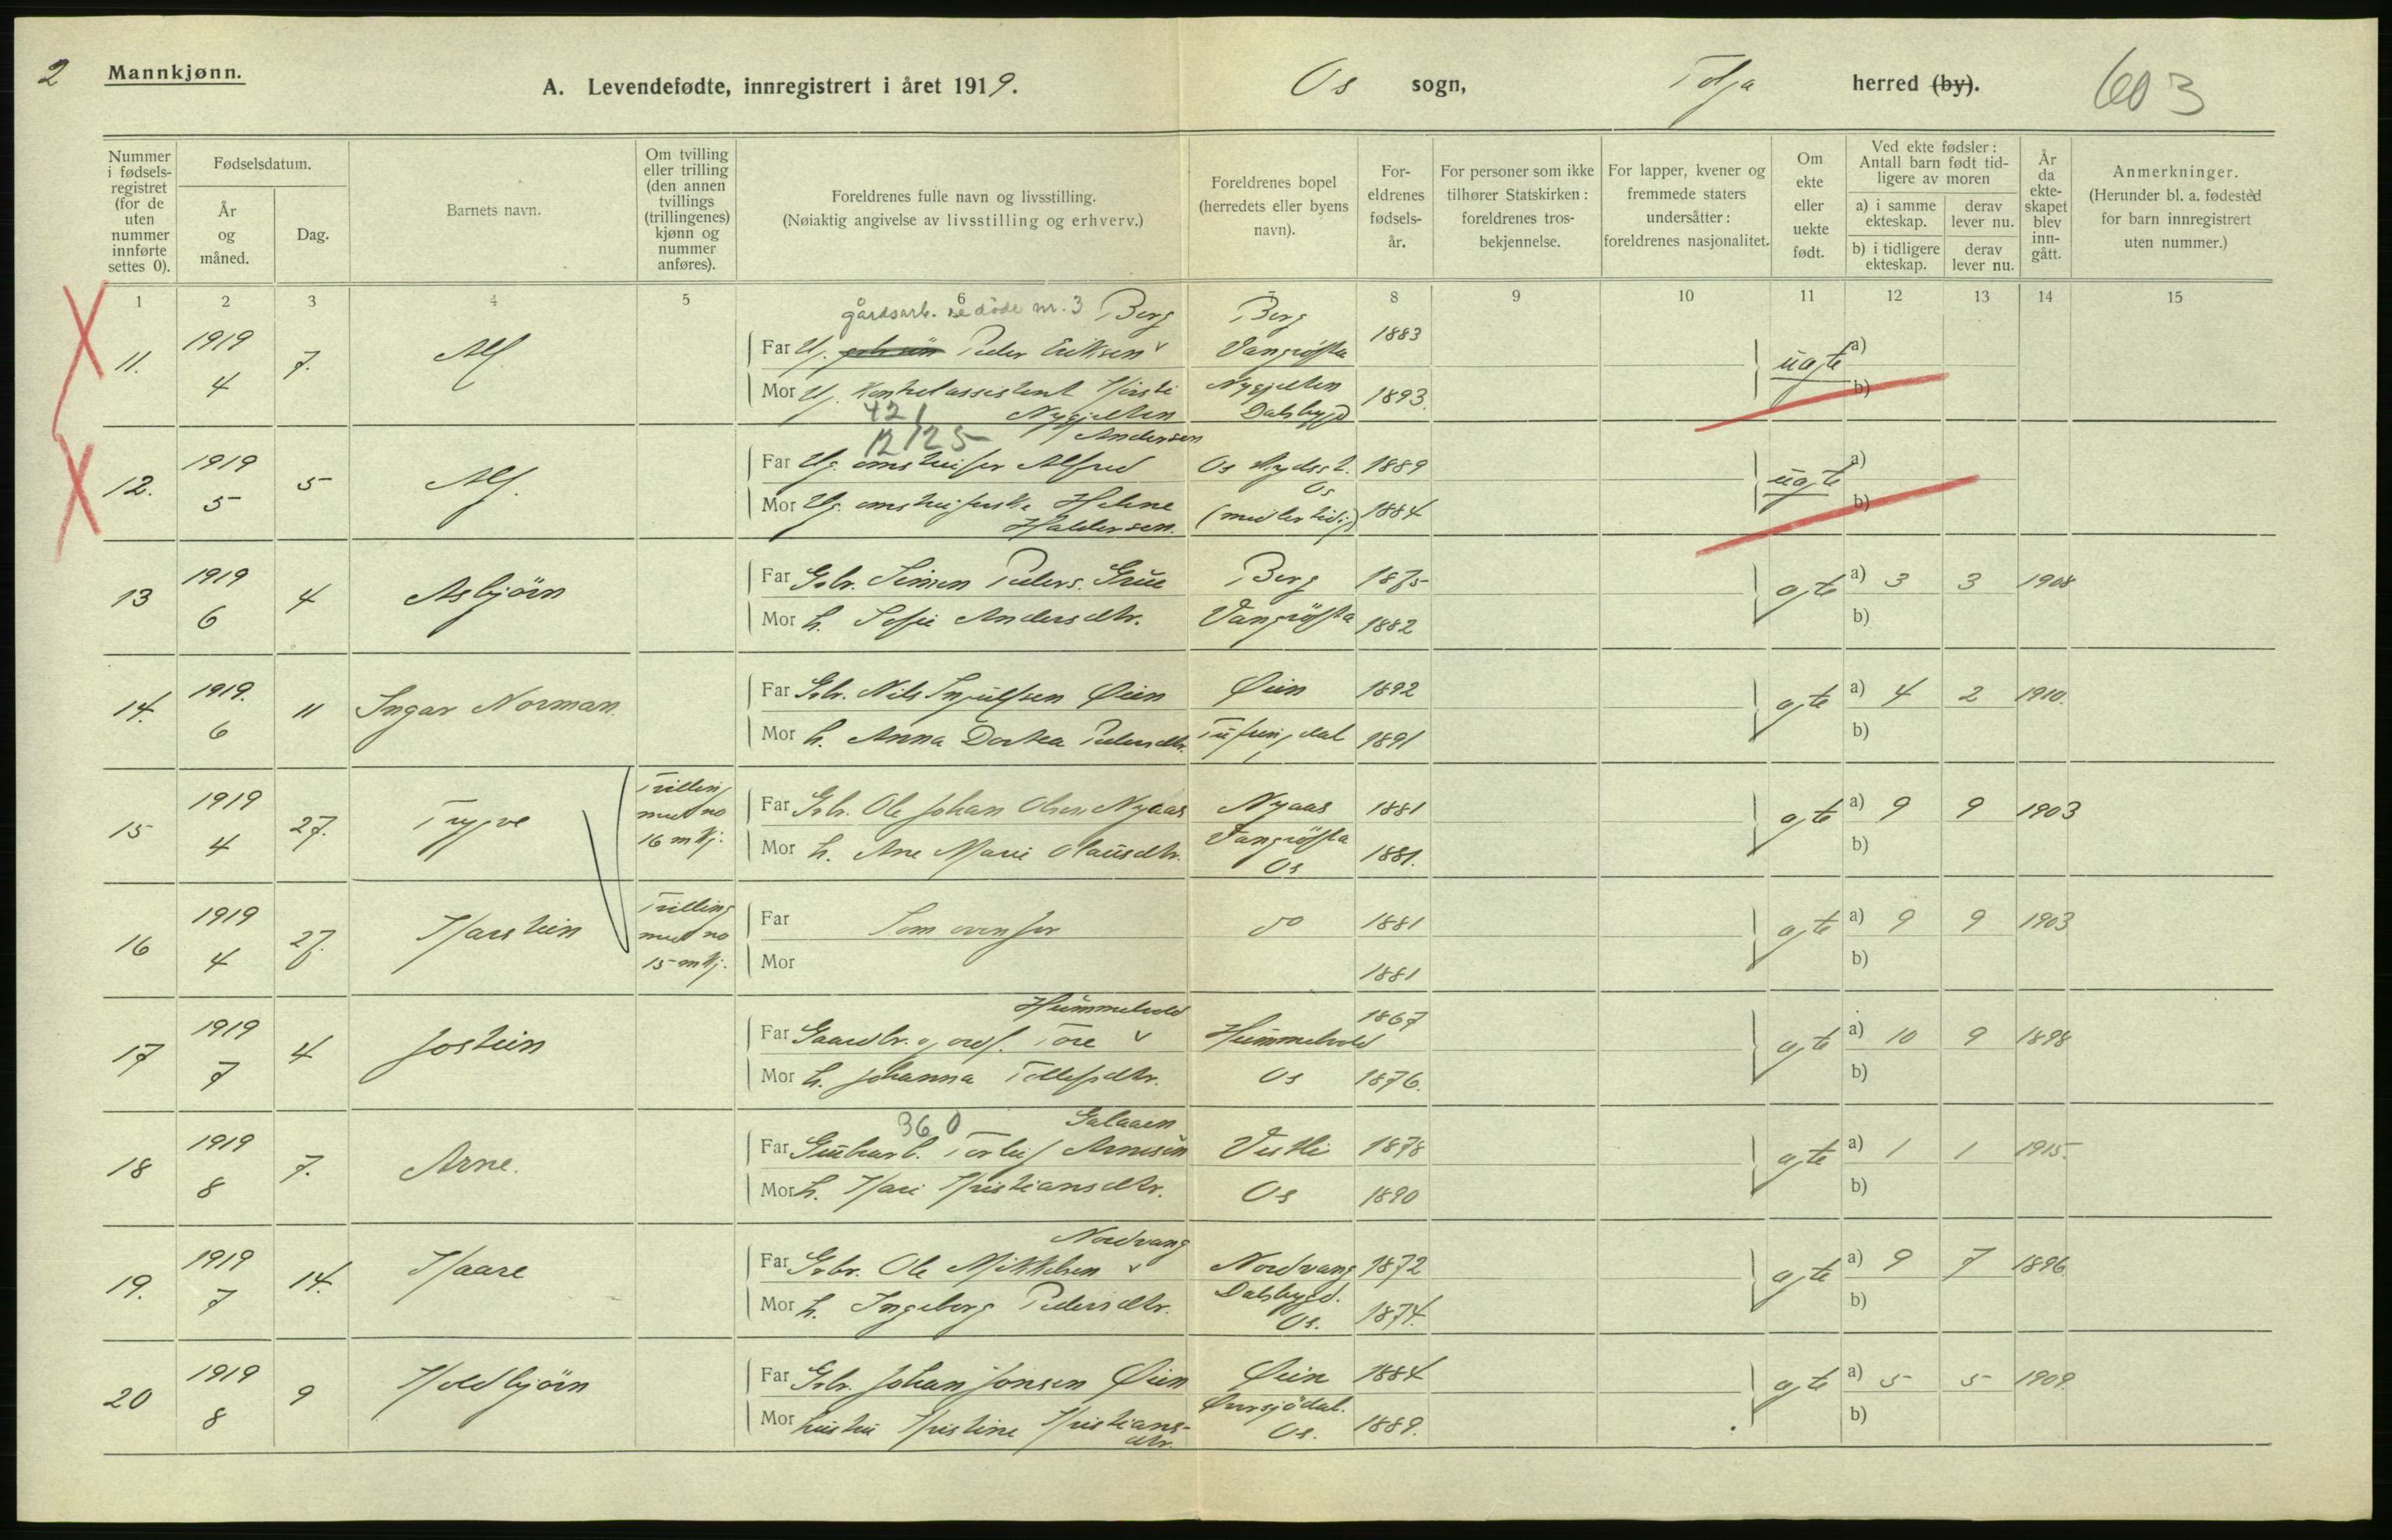 2
Mannkjønn.
A. Levendefødte, innregistrert i året 1919.
Os sogn,
Tolga herred (by).
603
Nummer i fødsels-registret (for de uten nummer innførte settes 0).
Fødselsdatum.
År og måned.
Dag.
Barnets navn.
Om tvilling eller trilling (den annen tvillings (trillingenes) kjønn og nummer anføres).
Foreldrenes fulle navn og livsstilling.
(Nøiaktig angivelse av livsstilling og erhverv.)
Foreldrenes bopel (herredets eller byens navn).
For-eldrenes fødsels-år.
For personer som ikke tilhører Statskirken: foreldrenes tros-bekjennelse.
For lapper, kvener og fremmede staters undersåtter: foreldrenes nasjonalitet.
Om ekte eller uekte født.
Ved ekte fødsler:
Antall barn født tid-ligere av moren
a) i samme ekteskap.
derav lever nu.
b) i tidligere ekteskap.
derav lever nu.
År da ekte-skapet blev inn-gått.
Anmerkninger.
(Herunder bl. a. fødested for barn innregistrert uten nummer.)
1 2 3 4 5 6 8 9 10 11 12 13 14 15
gårdsarb. se døde nr. 3 Berg Berg
11. 1919 4 7. Alf
Far Ug. Peder Eriksen Vangrøfta 1883
ugte a)
Mor Ug. Kontrolassistent Kirsti Nygjelten Nygjelten Dalsbygd 1893.
b)
421
12/25
Andersen
12. 1919 5 5 Alf.
Far Ug. omstreifer Alfred Os 1889
ugte a)
Mor Ug. omstreiferske Helene Haldersen. Os (midlertidig) 1884
b)
13 1919 6 4 Asbjörn
Far Gbr. Simen Peders. Grue Berg 1875
agte a) 3 3 1908
Mor h. Sofie Andersdtr. Vangröfta 1882
b)
14. 1919. 6 11 Ingar Norman.
Far Gbr. Nils Ingulfsen Øien Øien 1892
agte a) 4 2 1910.
Mor h. Anna Dortea Pedersdtr. Tufsingdal 1891
b)
15 1919 4 27. Trygve
Tvilling med no 16 mkj.
Far Gbr. Ole Johan Olsen Nyaas Nyaas 1881
agte a) 9 9 1903
Mor h. Ane Marie Olausdtr. Vangröfta Os 1881.
b)
16 1919 4 27. Harstein
Tvilling med no 15 mkj.
Far Som ovenfor do 1881
agte a) 9 9 1903
Mor 1881
b)
Hummelvold
17 1919 7 4 Jostein
Far Gaardbr. og ordf. Tore Hummelvold 1867
agte a) 10 9 1898
Mor h. Johanna Tollefsdtr. Os 1876.
b)
360 Galaaen
18 1919 8 7. Arne.
Far Grubearb. Torleif Arnesen Vestli 1878
agte a) 1 1 1915.
Mor h. Kari Kristiansdtr. Os 1890
b)
Nordvang
19. 1919 7 14. Kaare
Far Gbr. Ole Mikkelsen Nordvang 1872
agte a) 9 7 1896
Mor h. Ingeborg Pedersdtr. Dalsbygd. Os. 1874.
b)
20 1919 8 9 Koldbjörn
Far Gbr. Johan Jonsen Øien Øien 1884
agte a) 5 5 1909.
Mor hustru Kristine Kristians-dtr. Os. 1889.
b)